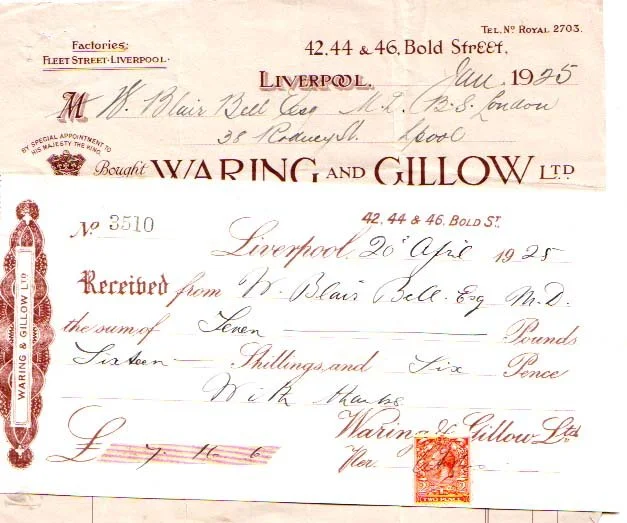 TEL. Nº ROYAL 2703.
Factories:
FLEET STREET · LIVERPOOL.
42, 44 & 46, Bold Street,
LIVERPOOL, Jan 1925
M W. Blair Bell Esq M.D. B.S. London
38 Rodney St. Lpool
BY SPECIAL APPOINTMENT TO
HIS MAJESTY THE KING
Bought WARING AND GILLOW LTD
Nº 3510
42, 44 & 46, BOLD ST.
Liverpool, 20 April 1925
Received from W. Blair Bell Esq M.D.
the sum of Seven Pounds
Sixteen Shillings and Six Pence
With thanks
Waring & Gillow Ltd
£ 7 16 6
Per.
WARING & GILLOW LTD
TWO PENCE